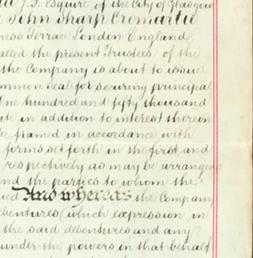 J. J. Esquire of the City of Glasgow
John Sharp Cromartie
ness Terrace London England
alled the present Trustees of the
the Company is about to issue
ommon Seal for securing principal
One hundred and fifty thousand
te in addition to interest thereon
be framed in accordance with
forms set forth in the first and
respectively as may be arranged
nd the parties to whom the
And whereas the Company
ebentures (which expression in
the said debentures and any
under the powers in that behalf